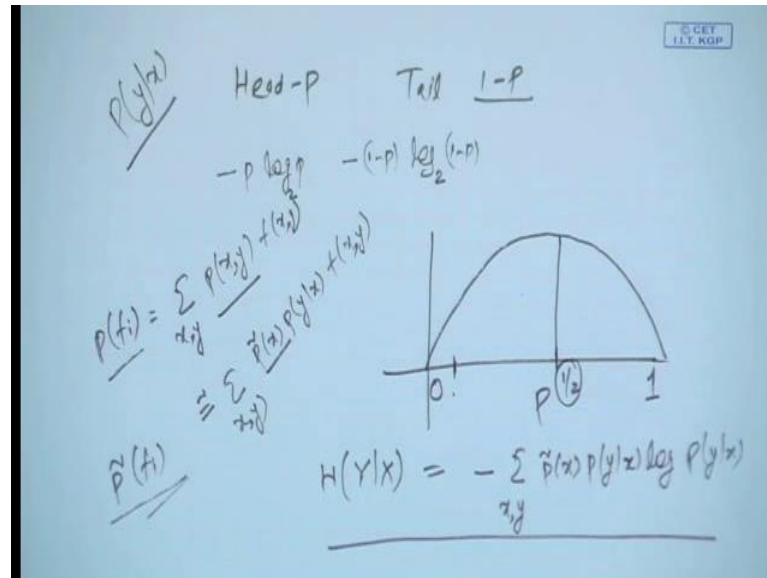 © CET
I.I.T. KGP
P(y|x) Head-P Tail 1-P
-P log₂P -(1-P) log₂(1-P)
P(fi) = Σx,y P(x,y) f(x,y)
≈ Σx,y p̃(x) P(y|x) f(x,y)
p̃(fi)
0 P 1/2 1
H(Y|X) = - Σx,y p̃(x) P(y|x) log P(y|x)